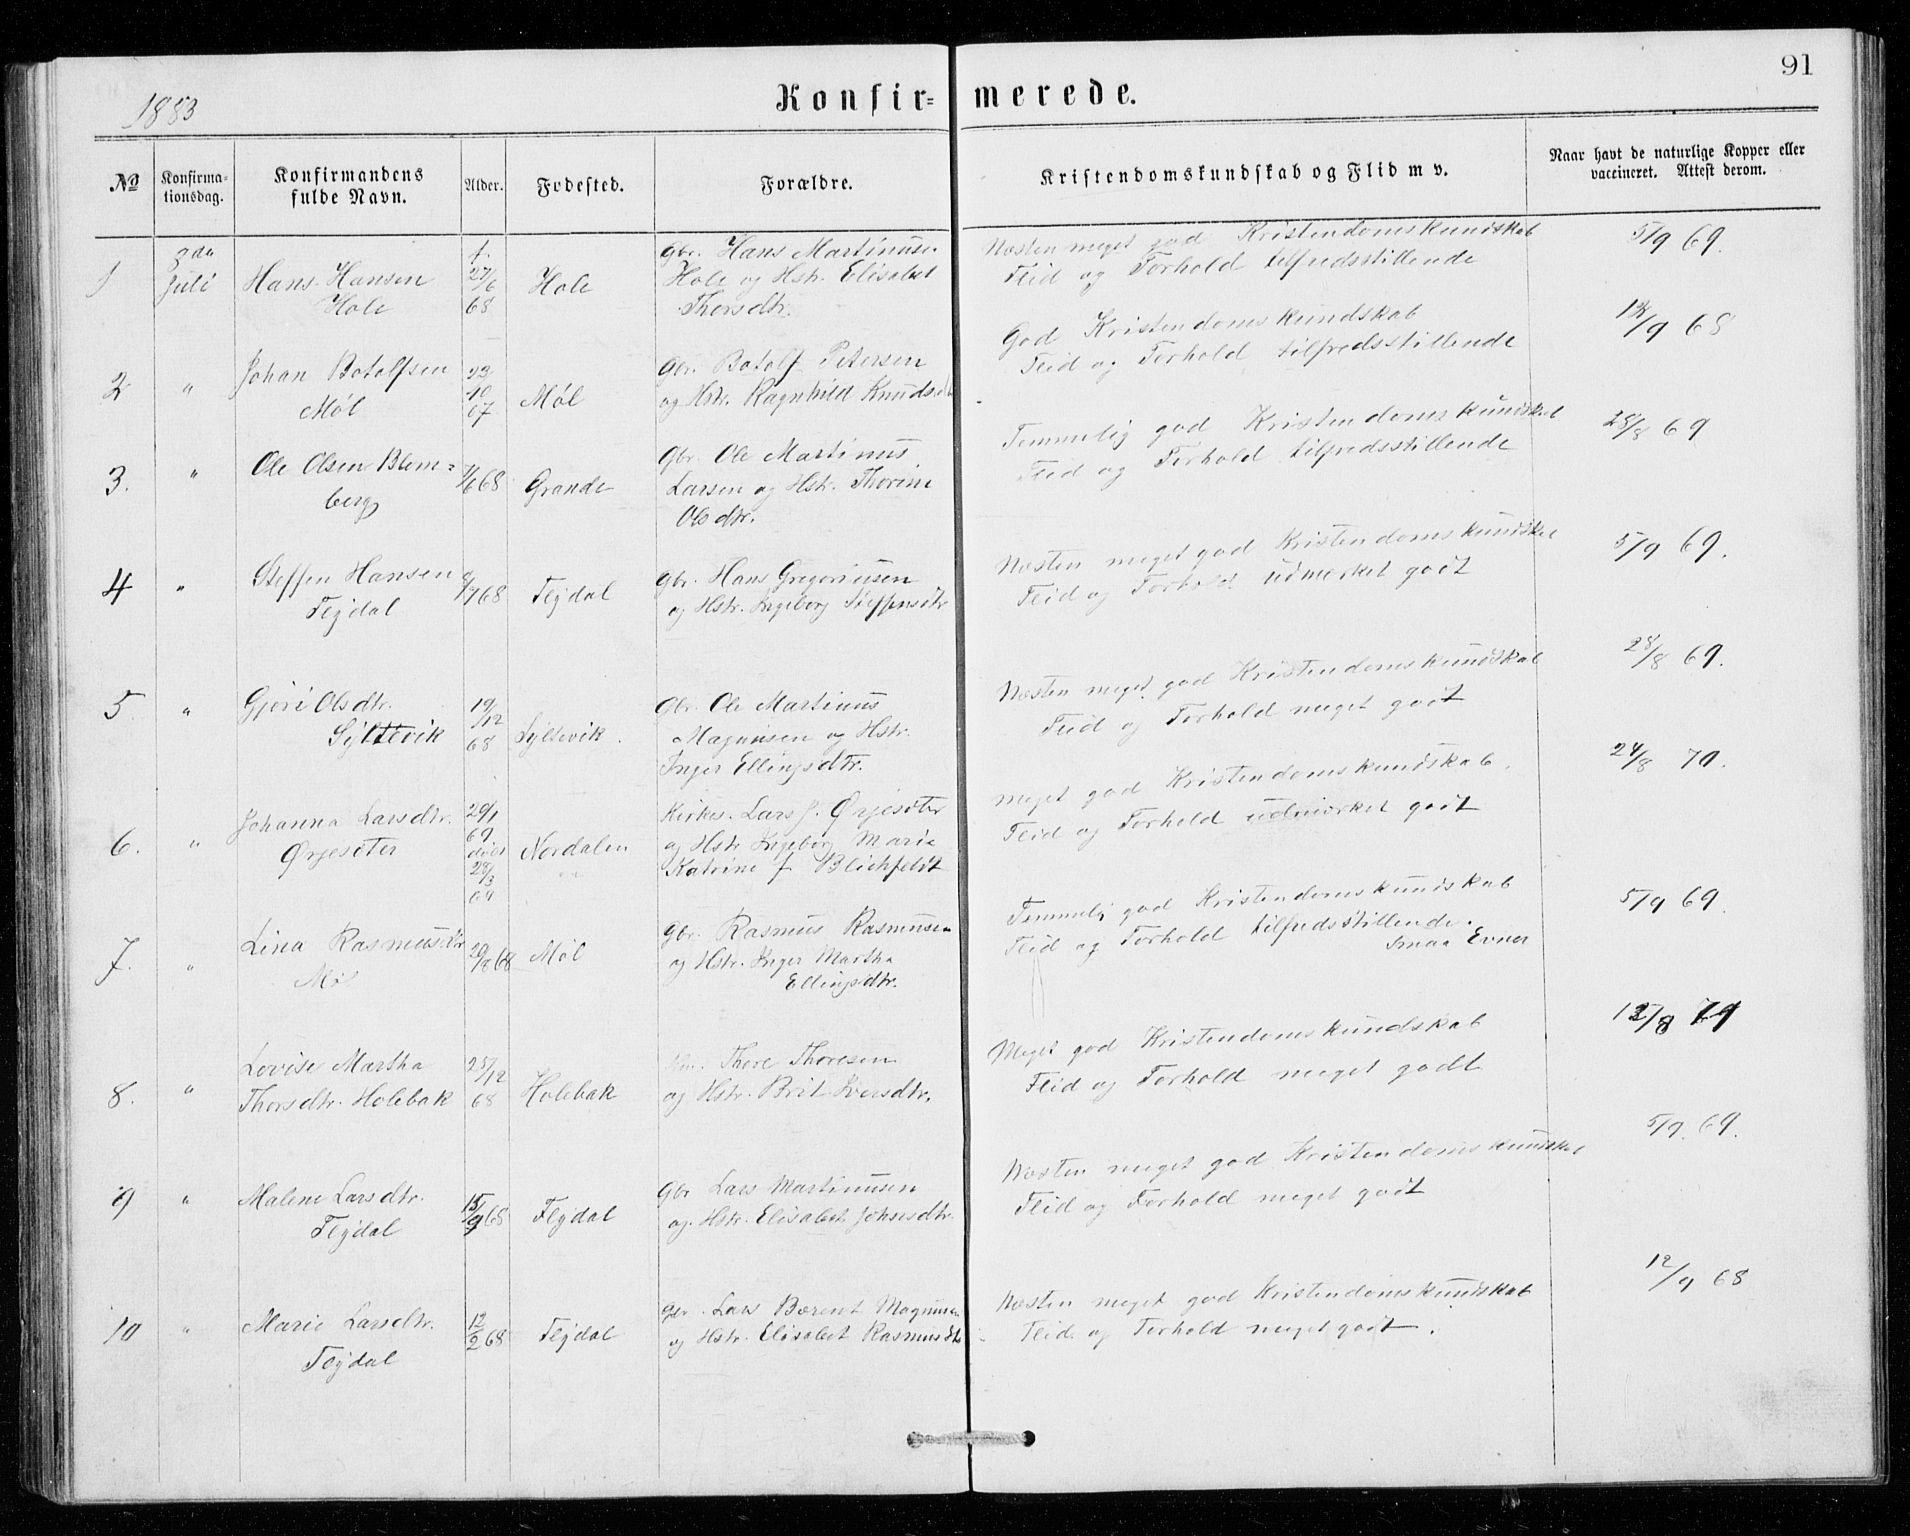 91
1883
Konfir=
merede.
No
Konfirma-
tionsdag.
Konfirmandens
fulde Navn.
Alder.
Fødested.
Forældre.
Kristendomskundskab og Flid m v.
Naar havt de naturlige Kopper eller
vaccineret. Attest derom.
1
Juli
Hans Hansen
Hole
f.
27/6
68
Hole
Gbr. Hans Martinusen
Hole og Hstr. Elisabet
Thorsdtr.
Næsten meget god Kristendomskundskab
Flid og Forhold tilfredsstillende
5/9 69.
2
"
Johan Botolfsen
Møl
22
10
67
Møl
Gbr. Botolf Petersen
og Hstr. Ragnhild Knudsdt
God Kristendomskundskab
Flid og Forhold tilfredsstillende
/9 68
3.
"
Ole Olsen Blem=
berg
/6 68
Grande
Gbr. Ole Martinus
Larsen og Hstr. Thorine
Olsdtr.
Temmelig god Kristendomskundskab
Flid og Forhold tilfredsstillende
28/8 69
4
"
Steffen Hansen
Flødal
/9 68
Flødal
Gbr. Hans Gregoriusen
og Hstr. Ingeborg Steffensdtr
Næsten meget god Kristendomskundskab
Flid og Forhold udmærket godt
5/9 69.
5
"
Gjøri Olsdtr.
Syltevik
19/12
68
Syltevik.
Gbr. Ole Martinus
Magnusen og Hstr.
Inger Ellingsdtr.
Næsten meget god Kristendomskundskab
Flid og Forhold meget godt
28/8 69.
6.
"
Johanna Larsdtr.
Ørjesæter
29/1
69
døbt
28/3
69
Nordalen
Kirkes. Lars J. Ørjesæter
og Hstr Ingeborg Marie
Katrine f Blichfeldt
Meget god Kristendomskundskab.
Flid og Forhold udmærket godt
24/8 70.
7.
"
Lina Rasmusdtr
Møl
29/8 68
Møl
Gbr. Rasmus Rasmusen
og Hstr. Inger Martha
Ellingsdtr.
Temmelig god Kristendomskundskab
Flid og Forhold tilfredsstillende.
Smaa Evner
5/9 69
8.
"
Lovise Martha
Thorsdtr. Holebak
25/12
68
Holebak
Thore Thoresen
og Hstr. Brit Iversdtr.
Meget god Kristendomskundskab
Flid og Forhold meget godt
9
"
Malene Larsdtr.
Flødal
15/9 68
Flødal
Gbr Lars Martinusen
og Hstr. Elisabet Johnsdtr.
Næsten meget god Kristendomskundskab
Flid og Forhold meget godt
5/9. 69.
10
"
Marie Larsdtr.
Flødal
12/2 68
Flødal
Gbr. Lars Bærent Magnusen
og Hstr. Elisabet Rasmusdt
Næsten meget god Kristendomskundskab
Flid og Forhold meget godt.
12/9 68